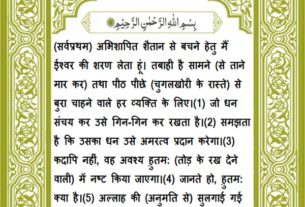 بِسْمِ اللهِ الرَّحْمٰنِ الرَّحِيْمِ
(सर्वप्रथम) अभिशापित शैतान से बचने हेतु मैं
ईश्वर की शरण लेता हूं। तबाही है सामने (से ताने
मार कर) तथा पीठ पीछे (चुगलखोरी के रास्ते) से
बुरा चाहने वाले हर व्यक्ति के लिए।(1) जो धन
संचय कर उसे गिन-गिन कर रखता है।(2) समझता
है कि उसका धन उसे अमरत्व प्रदान करेगा।(3)
कदापि नहीं, वह अवश्य हुतमः (तोड़ के रख देने
वाली) में नष्ट किया जाएगा।(4) जानते हो, हुतमः
क्या है।(5) अल्लाह की (अनुमति से) सुलगाई गई